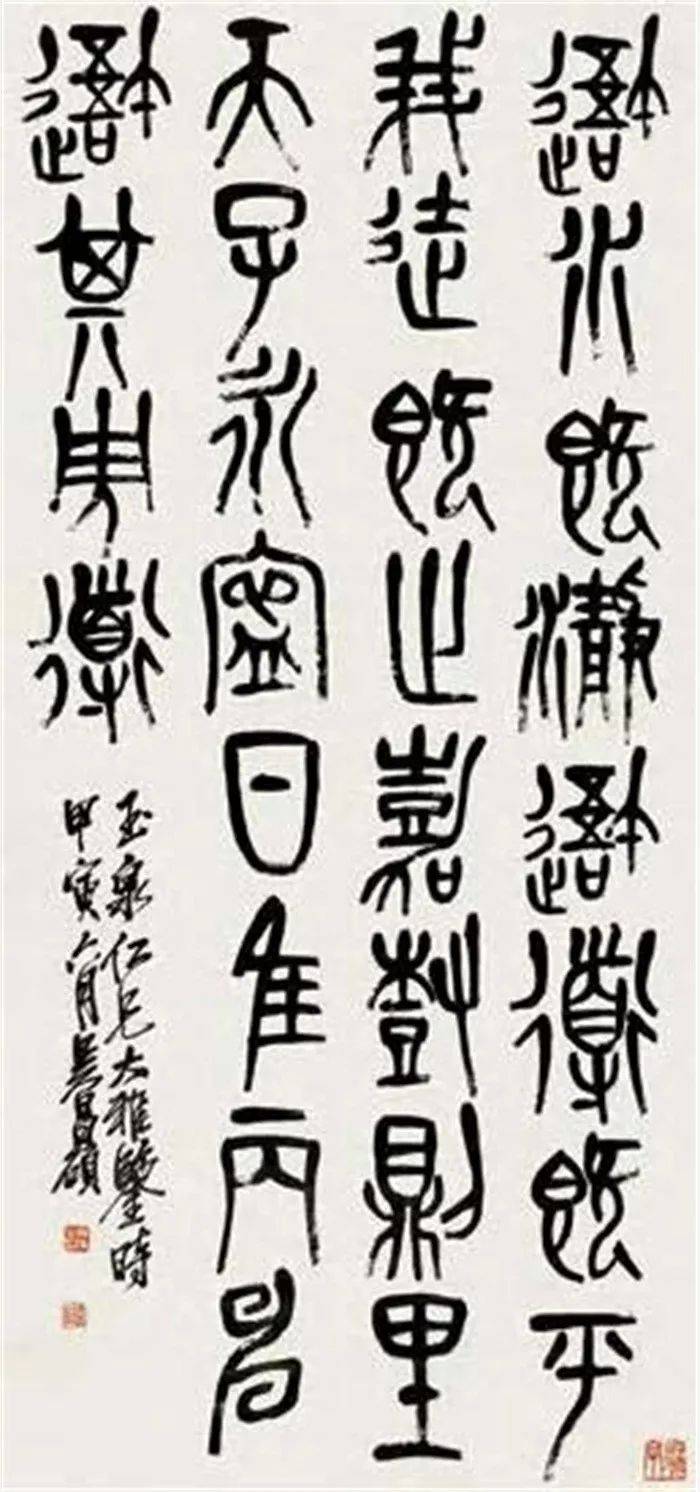 䢒水既瀞䢒導既平
我徒既止嘉尌則里
天子永寍日隹丙申
䢒其導
玉泉仁兄大雅鑒時
甲寅六月吳昌碩